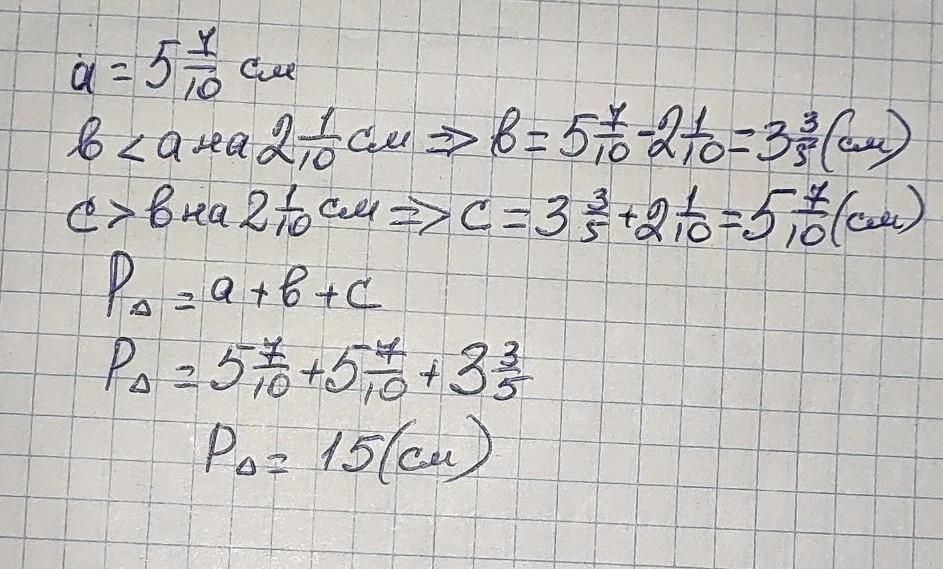 a = 5 7/10 см
в < а на 2 1/10 см ⇒ в = 5 7/10 - 2 1/10 = 3 3/5 (см)
с > в на 2 1/10 см ⇒ с = 3 3/5 + 2 1/10 = 5 7/10 (см)
P△ = а + в + с
P△ = 5 7/10 + 5 7/10 + 3 3/5
P△ = 15 (см)